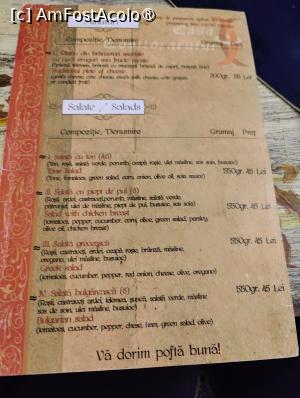 [© AmFostAcolo®]
Compoziție/Denumire Gramaj
Traditional plate of cheese
300gr. 55 Lei
Salate / Salads
Compoziție/Denumire Gramaj Preț
I. Salată cu ton (4,6)
(Ton, roșii, salată verde, porumb, ceapă roșie, ulei măsline, sos soia, busuioc)
Tone Salad 550gr. 45 Lei
(Tone, tomatoes, green salad, corn, onion, olive oil, soia sauce)
II. Salată cu piept de pui (6)
(Roșii, ardei, castraveți, porumb, măsline, salată verde,
pătrunjel, ulei de măsline, piept de pui, busuioc, sos soia)
Salad with chicken breast 550gr. 45 Lei
(tomatoes, pepper, cucumber, corn, olive, green salad, parsley,
olive oil, chicken breast)
III. Salată grecească
(Roșii, castraveți, ardei, ceapă roșie, brânză, măsline,
oregano, ulei măsline, busuioc) 550gr. 45 Lei
Greek salad
(tomatoes, cucumber, pepper, red onion, cheese, olive, oregano)
IV. Salată bulgărească (6)
(Roșii, castraveți, ardei, telemea, șuncă, salată verde, măsline
sos de soia, ulei măsline, busuioc) 550gr. 45 Lei
Bulgarian salad
(tomatoes, cucumber, pepper, chese, ham, green salad, olive)
Vă dorim poftă bună!